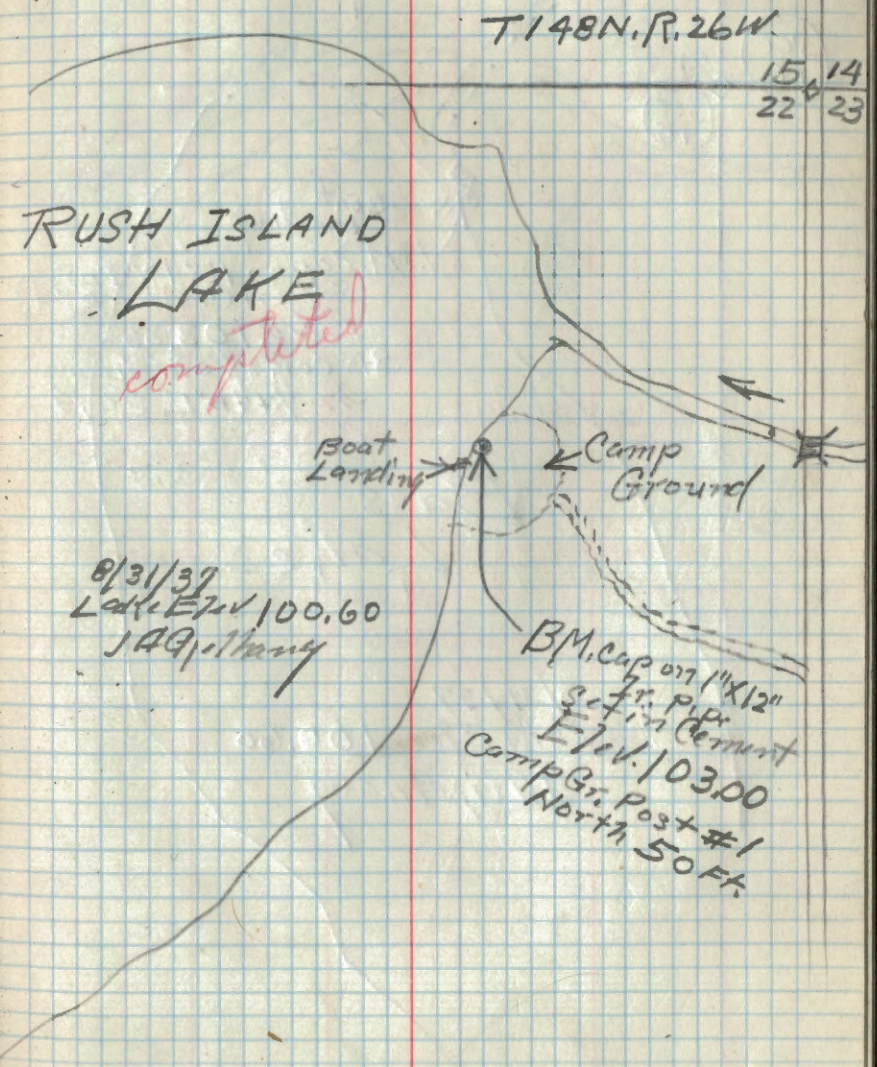 T148N. R. 26W.
15 14
22 23
RUSH ISLAND
LAKE
completed
Boat
Landing
Camp
Ground
8/31/37
Lake Elev 100.60
BM. Cap on 1"X12"
Ir. pipe
Set in Cement
Elev. 103.00
Camp Gr. Post #1
North 50 Ft.